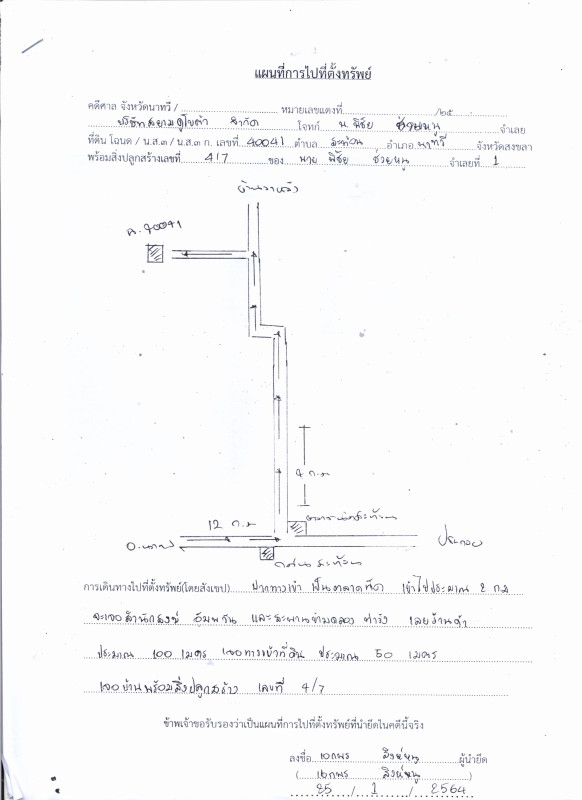 แผนที่การไปที่ตั้งทรัพย์
คดีศาล จังหวัดนาทวี / ........ หมายเลขแดงที่ ........ /๒๕ ........
บริษัทสยามคูโบต้า จำกัด โจทก์ น. พิชัย ช่วยหนู จำเลย
ที่ดิน โฉนด / น.ส.๓ / น.ส.๓ ก. เลขที่ 40041 ตำบล สะท้อน อำเภอ นาทวี จังหวัดสงขลา
พร้อมสิ่งปลูกสร้างเลขที่ 4/7 ของ นาย พิชัย ช่วยหนู จำเลยที่ 1
ฉ. 40041
4 ก.ม
12 ก.ม
อ.นาทวี
ประกอบ
การเดินทางไปที่ตั้งทรัพย์(โดยสังเขป) ปากทางเข้า เป็นตลาดนัด เข้าไปประมาณ 2 กม
จะเจอสำนักสงฆ์ และสะพานข้ามคลอง เลยร้านค้า
ประมาณ 100 เมตร เจอทางเข้าที่ดิน ประมาณ 50 เมตร
เจอบ้านพร้อมสิ่งปลูกสร้าง เลขที่ 4/7
ข้าพเจ้าขอรับรองว่าเป็นแผนที่การไปที่ตั้งทรัพย์ที่นำยึดในคดีนี้จริง
ลงชื่อ เอกพร สิงห์หนู ผู้นำยึด
( เอกพร สิงห์หนู )
25 / 1 / 2564